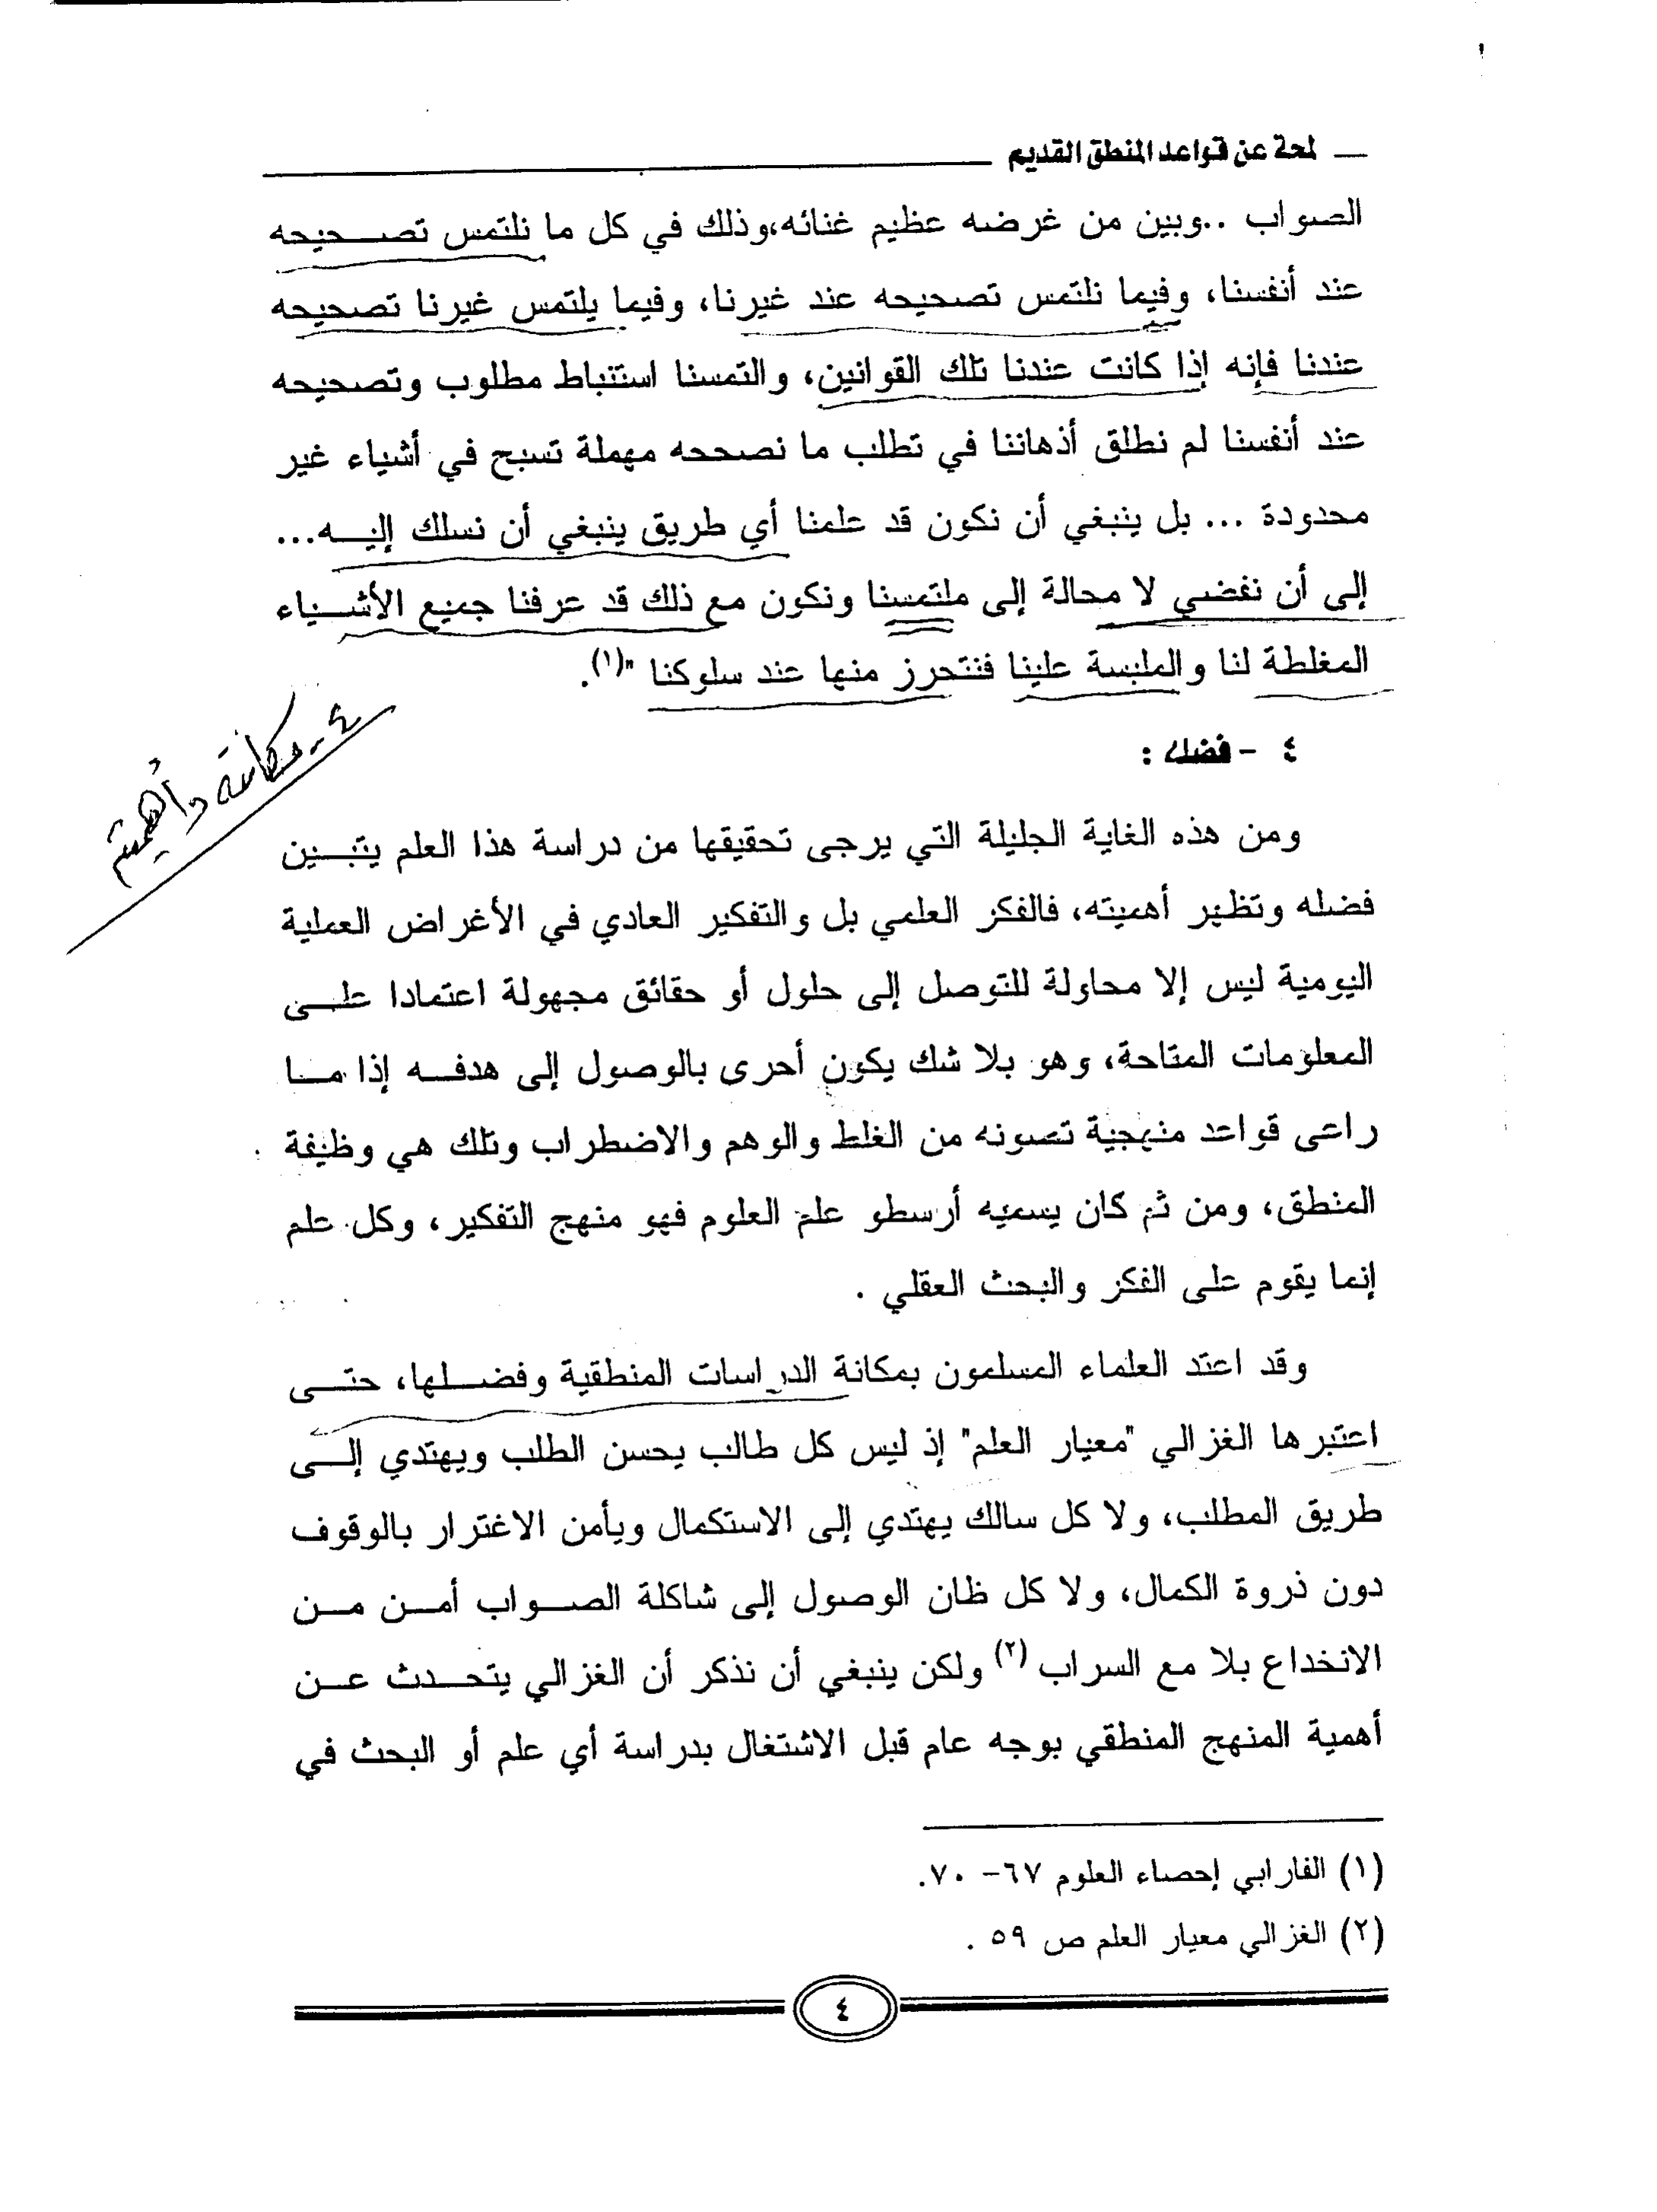 لمحة عن قواعد المنطق القديم
الصواب ..وبين من غرضه عظيم غنائه،وذلك في كل ما نلتمس تصحيحه
عند أنفسنا، وفيما نلتمس تصحيحه عند غيرنا، وفيما يلتمس غيرنا تصحيحه
عندنا فإنه إذا كانت عندنا تلك القوانين، والتمسنا استنباط مطلوب وتصحيحه
عند أنفسنا لم نطلق أذهاننا في تطلب ما نصححه مهملة تسبح في أشياء غير
محدودة ... بل ينبغي أن نكون قد علمنا أي طريق ينبغي أن نسلك إليه...
إلى أن نفضي لا محالة إلى ملتمسنا ونكون مع ذلك قد عرفنا جميع الأشياء
المغلطة لنا والملبسة علينا فنتحرز منها عند سلوكنا "(١).
٤ - فضله :
٤- مكانته وأهميته
ومن هذه الغاية الجليلة التي يرجى تحقيقها من دراسة هذا العلم يتبين
فضله وتظهر أهميته، فالفكر العلمي بل والتفكير العادي في الأغراض العملية
اليومية ليس إلا محاولة للتوصل إلى حلول أو حقائق مجهولة اعتمادا على
المعلومات المتاحة، وهو بلا شك يكون أحرى بالوصول إلى هدفه إذا ما
راعى قواعد منهجية تصونه من الغلط والوهم والاضطراب وتلك هي وظيفة
المنطق، ومن ثم كان يسميه أرسطو علم العلوم فهو منهج التفكير، وكل علم
إنما يقوم على الفكر والبحث العقلي .
وقد اعتد العلماء المسلمون بمكانة الدراسات المنطقية وفضلها، حتى
اعتبرها الغزالي "معيار العلم" إذ ليس كل طالب يحسن الطلب ويهتدي إلى
طريق المطلب، ولا كل سالك يهتدي إلى الاستكمال ويأمن الاغترار بالوقوف
دون ذروة الكمال، ولا كل ظان الوصول إلى شاكلة الصواب أمن من
الانخداع بلا مع السراب (٢) ولكن ينبغي أن نذكر أن الغزالي يتحدث عن
أهمية المنهج المنطقي بوجه عام قبل الاشتغال بدراسة أي علم أو البحث في
(١) الفارابي إحصاء العلوم ٦٧- ٧٠.
(٢) الغزالي معيار العلم ص ٥٩ .
٤